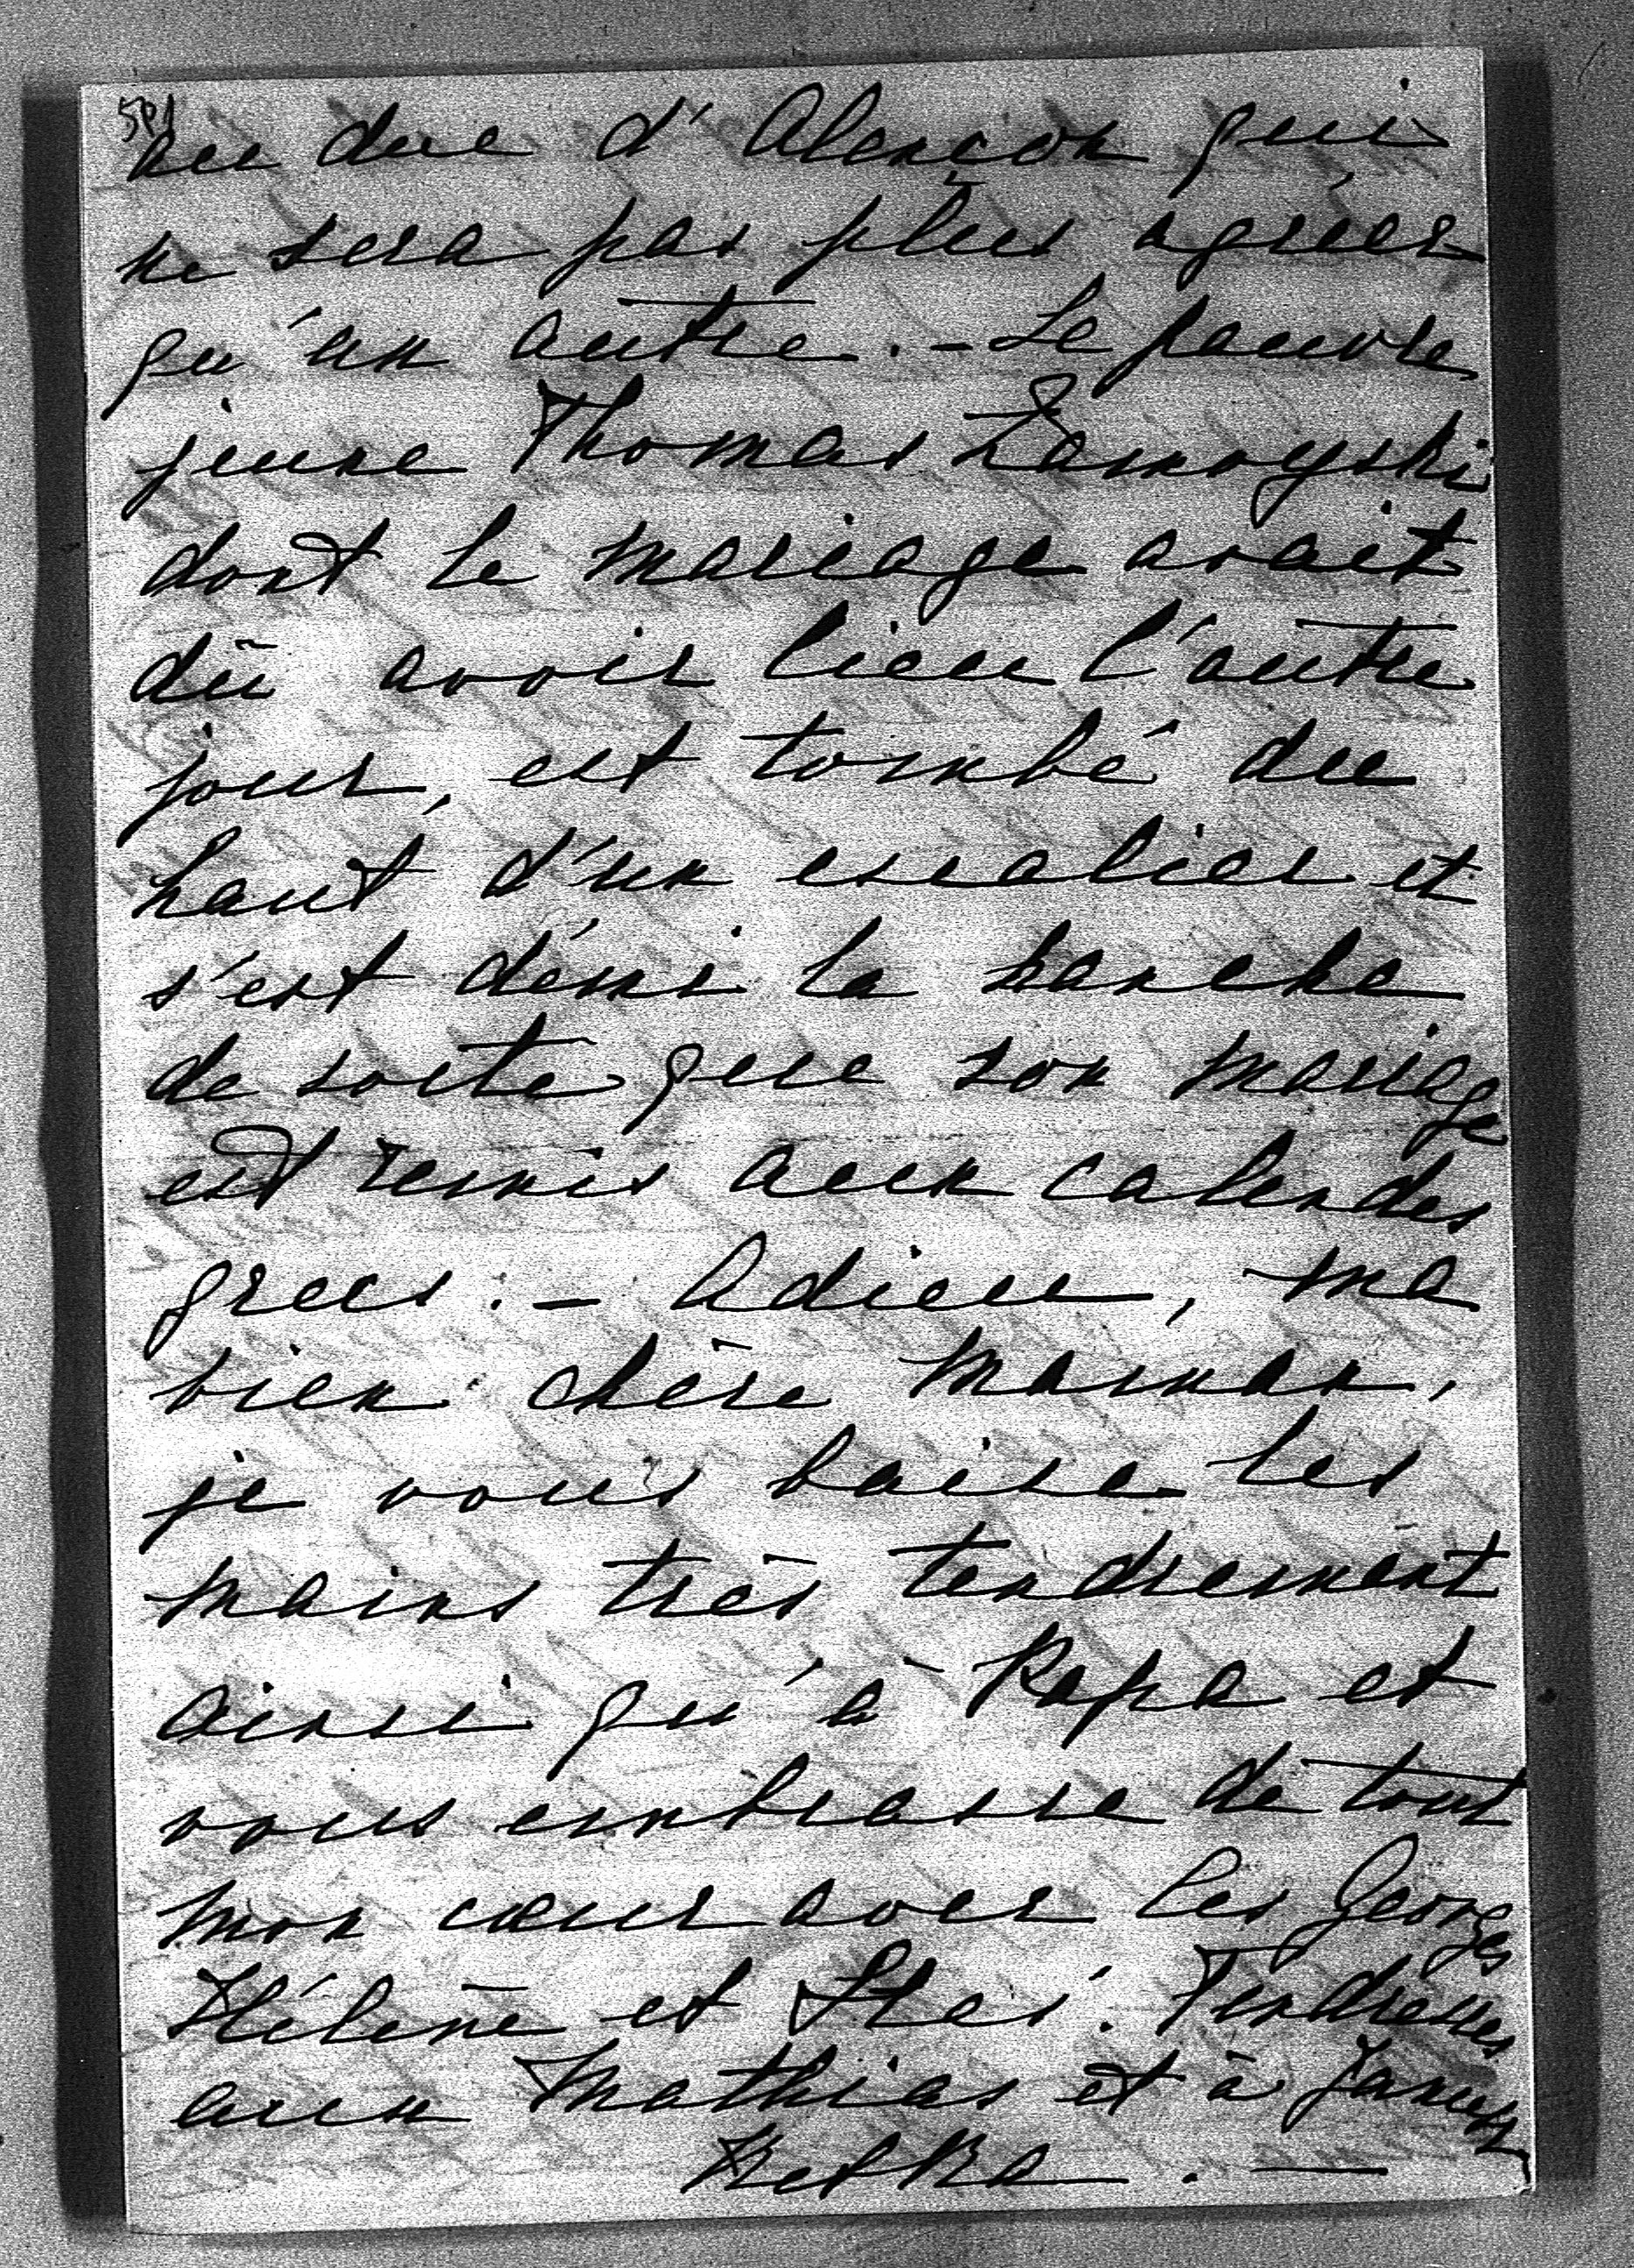 501
au duc d'Alençon qui
ne sera pas plus agréer
qu'un autre. - Le pauvre
jeune Thomas Zamoyski
dont le mariage avait
dû avoir lieu l'autre
jour, est tombé du
haut d'un escalier et
s'est démi la hanche
de sorte que son mariage
est remis aux calendes
grecs. - Adieu, ma
bien chère Maman,
je vous baise les
mains très tendrement
ainsi qu'à Papa et
vous embrasse de tout
mon cœur avec les Georges
Hélène et Stas. Tendresses
aux Mathias et à Janusz